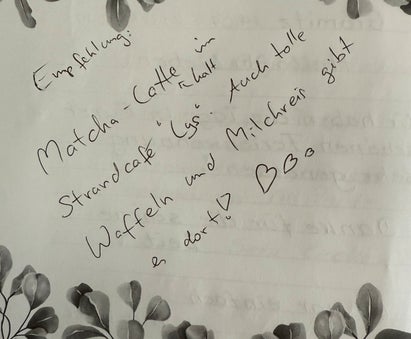 Empfehlung:
Matcha-Latte im
kalt
Strandcafé "Lys". Auch tolle
Waffeln und Milchreis gibt
es dort!